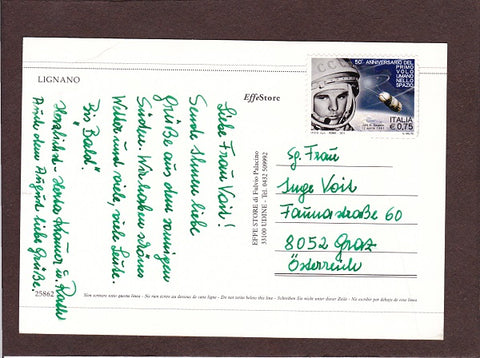 LIGNANO
EffeStore
Liebe Frau Voit!
Sende Ihnen liebe
Grüße aus dem sonnigen
Süden. Wir haben schönes
Wetter und viele, viele Leute.
Bis Bald!
Herzlichst -
Auch dem August liebe Grüße.
25862
EFFE STORE di Fulvio Palacino
33100 UDINE Tel. 0432 509992
50° ANNIVERSARIO DEL
PRIMO VOLO
UMANO NELLO
SPAZIO
ITALIA
€ 0,75
Sg. Frau
Inge Voit
Faunastraße 60
8052 Graz
Österreich
Non scrivere sotto questa linea - Ne rien écrire au dessous de cette ligne - Do not write below this line - Schreiben Sie nicht unter dieser Zeile - No escribir por debajo de esta linea